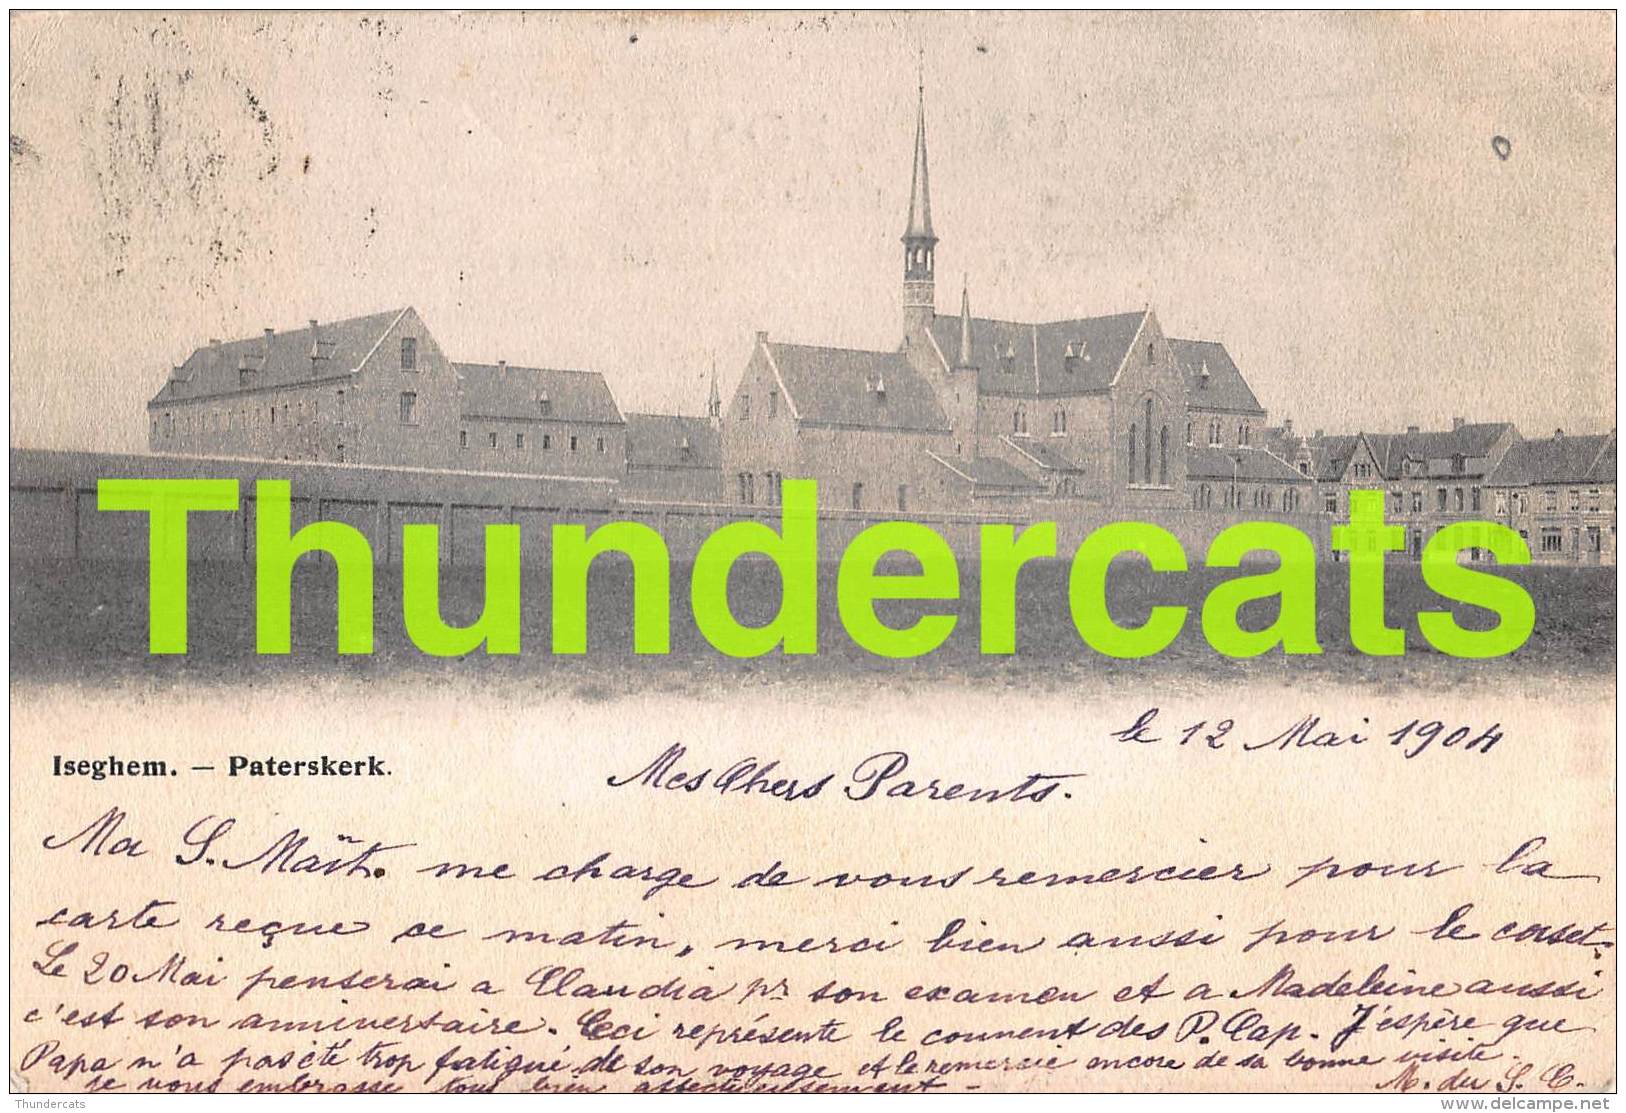 Thundercats
le 12 Mai 1904
Iseghem. — Paterskerk.
Mes Chers Parents.
Ma S. Maît. me charge de vous remercier pour la
carte reçue ce matin, merci bien aussi pour le corset.
Le 20 Mai penserai a Claudia pr son examen et a Madeleine aussi
c'est son anniversaire. Ceci représente le couvent des P. Cap. J'espère que
Papa n'a pas été trop fatigué de son voyage et le remercie encore de sa bonne visite.
Je vous embrasse tous bien affectueusement -
M. du S. C.
Thundercats
www.delcampe.net